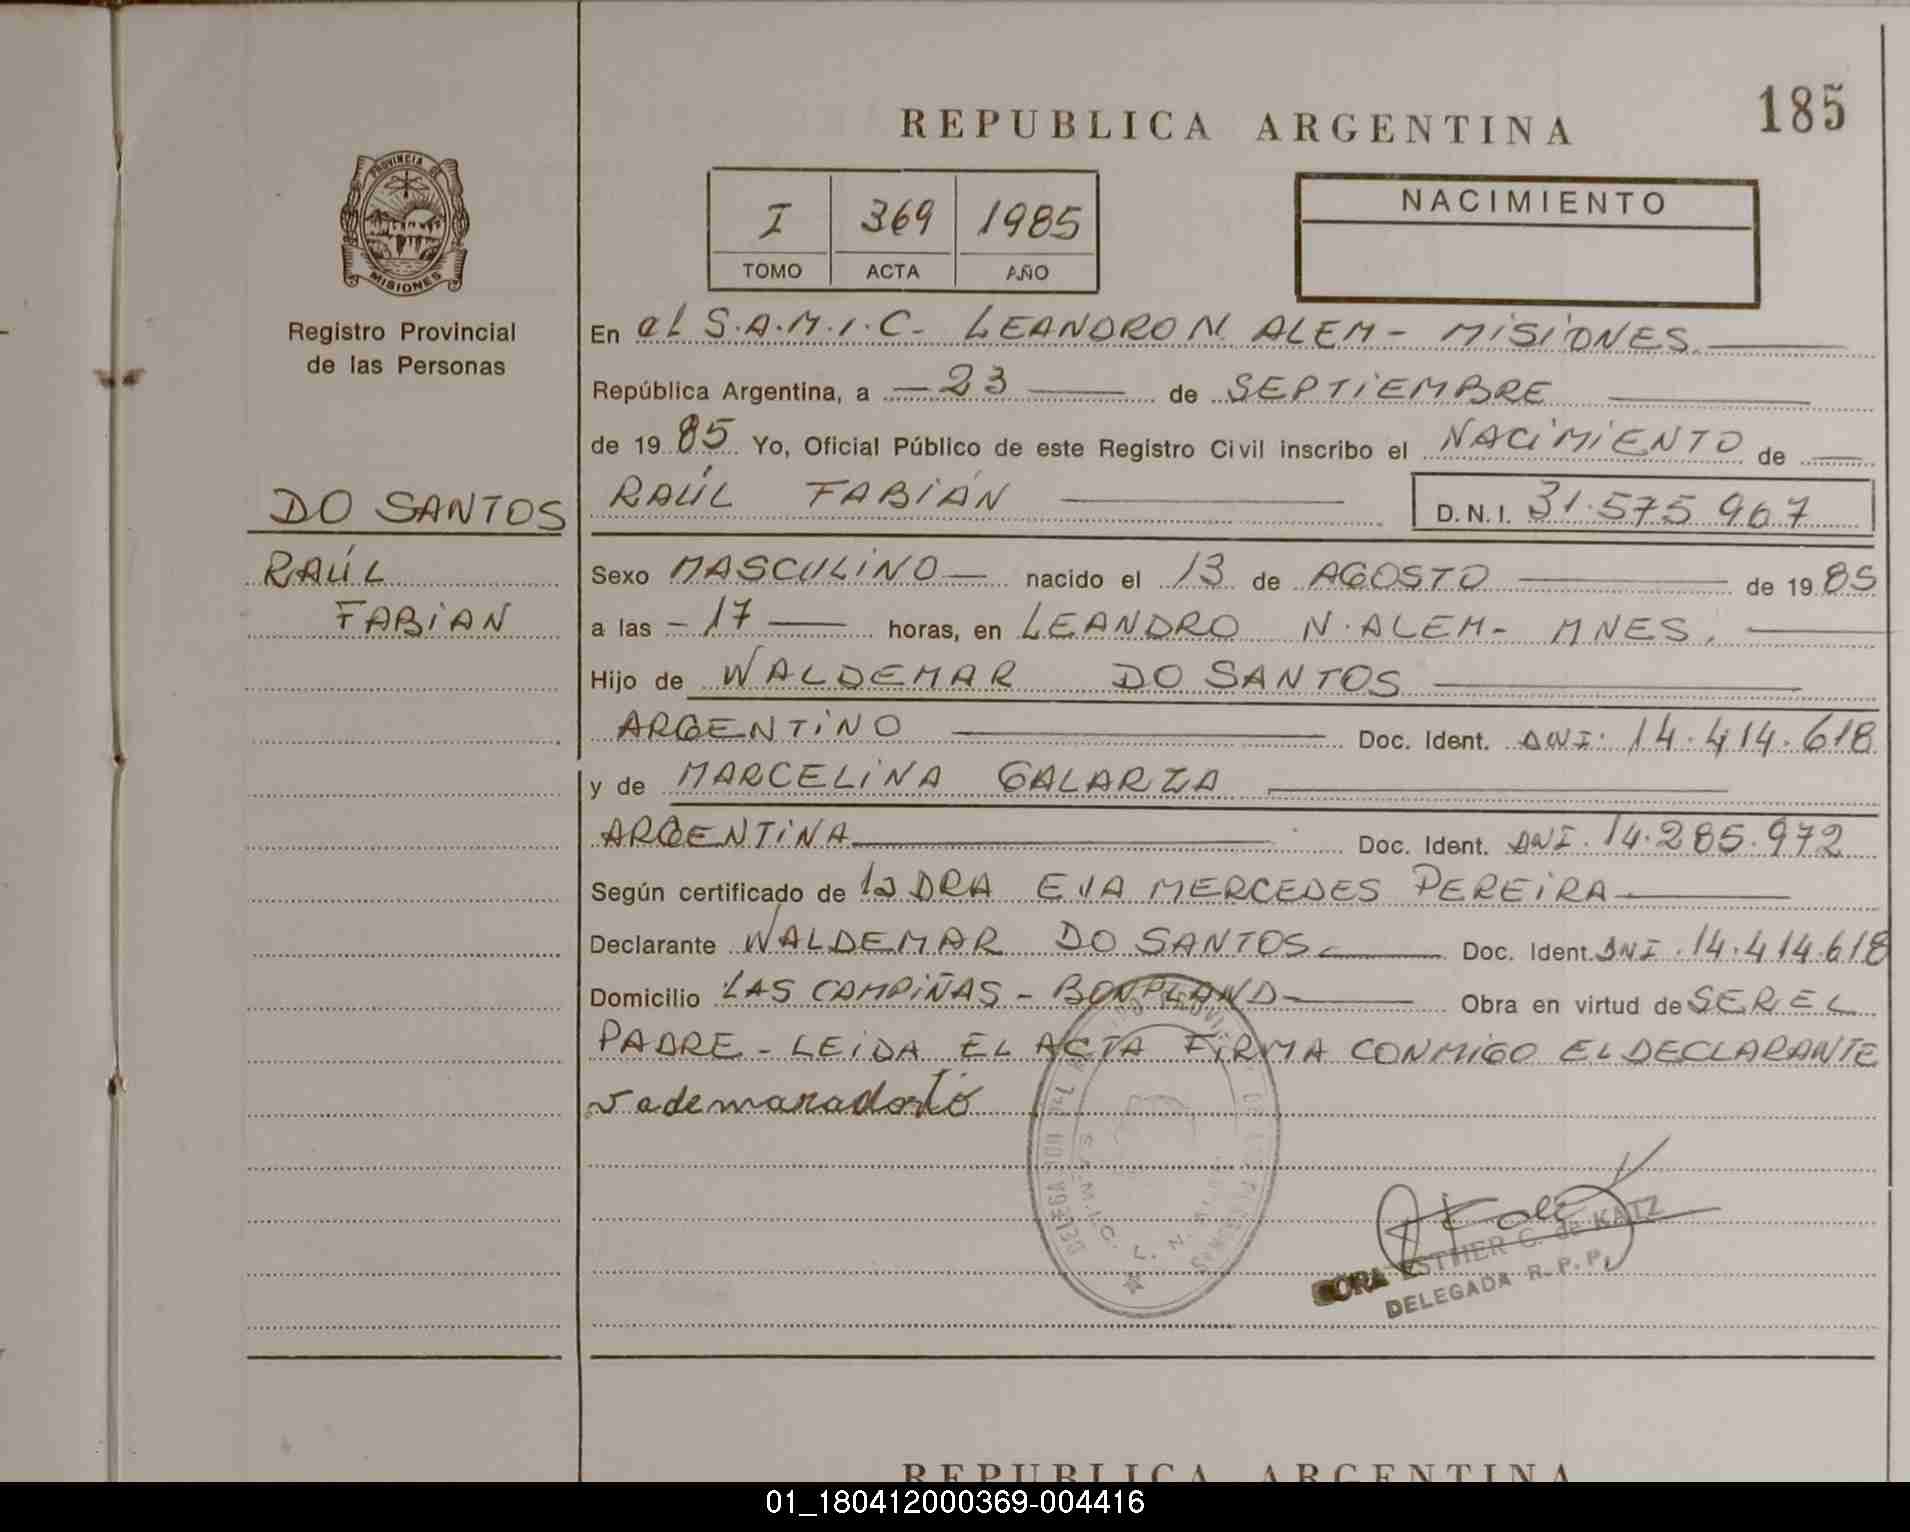 REPUBLICA ARGENTINA
185
PROVINCIA DE
MISIONES
Registro Provincial
de las Personas
I 369 1985
TOMO ACTA AÑO
NACIMIENTO
En el S.A.M.I.C- LEANDRO N. ALEM - MISIONES.
República Argentina, a - 23 de SEPTIEMBRE
de 19 85 Yo, Oficial Público de este Registro Civil inscribo el NACIMIENTO de
RAÚL FABIÁN D.N.I. 31.575 967
DO SANTOS
RAÚL
FABIAN
Sexo MASCULINO nacido el 13 de AGOSTO de 19 85
a las - 17 horas, en LEANDRO N. ALEM- MNES.
Hijo de WALDEMAR DO SANTOS
ARGENTINO Doc. Ident. DNI. 14.414.618
y de MARCELINA GALARZA
ARGENTINA Doc. Ident. DNI. 14.285.972
Según certificado de la DRA EVA MERCEDES PEREIRA
Declarante WALDEMAR DO SANTOS. Doc. Ident. DNI. 14.414.618
Domicilio LAS CAMPIÑAS - BONPLAND Obra en virtud de SER EL
PADRE - LEIDA EL ACTA FIRMA CONMIGO EL DECLARANTE
S.A.M.I.C. L. N.
ESTHER C. de KATZ
DELEGADA R.P.P.
REPUBLICA ARGENTINA
01_180412000369-004416